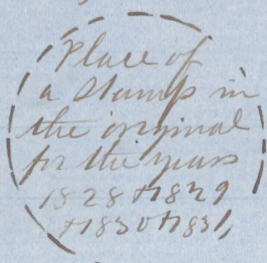 Place of
a Stamp in
the original
for the years
1828 + 1829
+ 1830 + 1831,